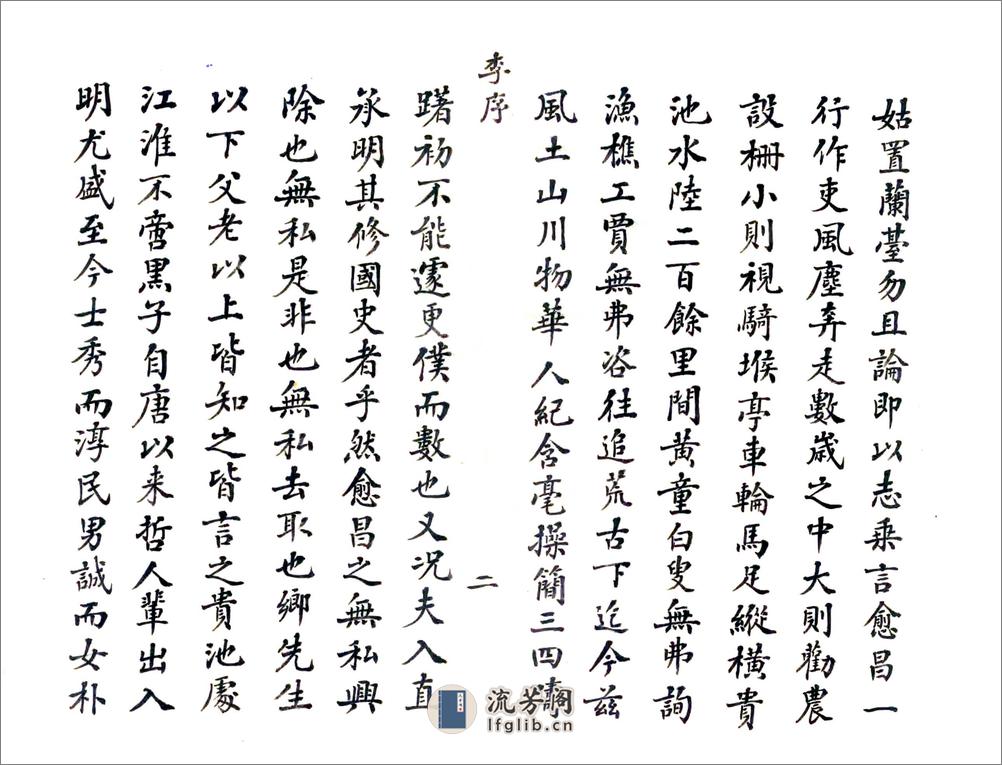 姑置蘭臺勿且論即以志乗言愈昌一
行作吏風塵奔走數歲之中大則勸農
設柵小則視騎堠亭車輪馬足縱橫貴
池水陸二百餘里間黃童白叟無弗詢
漁樵工賈無弗咨往追荒古下迄今茲
風土山川物華人紀含毫操簡三四
李序
二
躇初不能遽更僕而數也又況夫入直
承明其修國史者乎然愈昌之無私興
除也無私是非也無私去取也鄉先生
以下父老以上皆知之皆言之貴池處
江淮不啻黑子自唐以来哲人輩出入
明尤盛至今士秀而淳民男誠而女朴
流芳閣
lfglib.cn